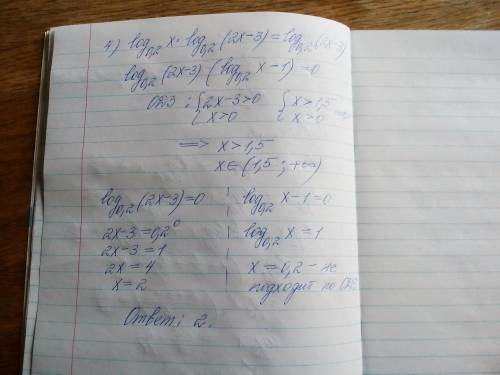 4) log₀,₂ x · log₀,₂ (2x-3) = log₀,₂ (2x-3)
log₀,₂ (2x-3) (log₀,₂ x - 1) = 0
ОДЗ: { 2x-3>0 { x>1,5 =>
{ x>0 { x>0
=> x>1,5
x∈(1,5; +∞)
log₀,₂ (2x-3) = 0 | log₀,₂ x - 1 = 0
2x-3 = 0,2⁰ | log₀,₂ x = 1
2x-3 = 1
2x = 4 | x = 0,2 - не
x = 2 | подходит по ОДЗ
Ответ: 2.